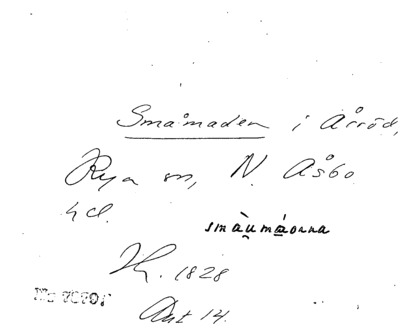 Småmaden i Årröd,
Rya sn, N. Åsbo
hd.
smàu̯má̱onna
Th. 1828
Akt 14.